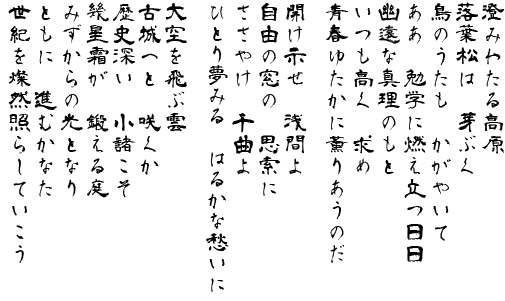 澄みわたる高原
落葉松は　芽ぶく
鳥のうたも　かがやいて
ああ　勉学に燃え立つ日日
幽遠な真理のもと
いつも高く　求め
青春ゆたかに薫りあうのだ
開け示せ　浅間よ
自由の窓の　思索に
ささやけ　千曲よ
ひとり夢みる　はるかな愁いに
大空を飛ぶ雲
古城へと　咲くか
歴史深い　小諸こそ
幾星霜が　鍛える庭
みずからの光となり
ともに　進むかなた
世紀を燦然照らしていこう